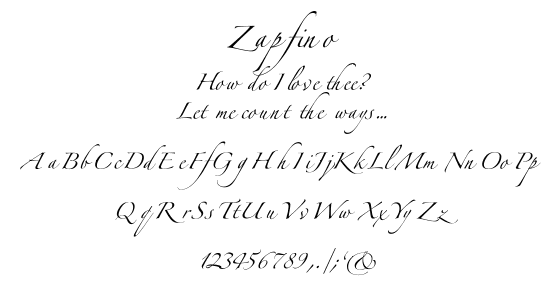 Zapfino
How do I love thee?
Let me count the ways...
Aa Bb Cc Dd Ee Ff Gg Hh Ii Jj Kk Ll Mm Nn Oo Pp
Qq Rr Ss Tt Uu Vv Ww Xx Yy Zz
123456789,.|;'&